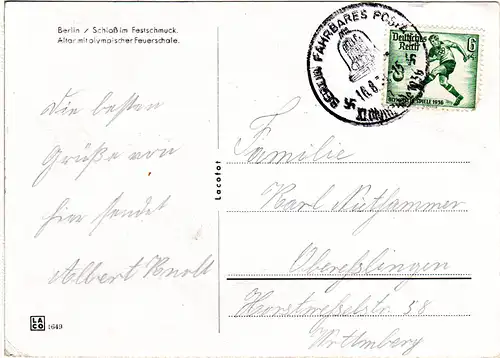 Berlin / Schloß im Festschmuck.
Altar mit olympischer Feuerschale.
Die besten
Grüße von
hier sendet
Albert Knoll
LACO 1649
Lacofot
BERLIN FAHRBARES POSTAMT
16.8.
XI. Olympiade 1936
Deutsches Reich
6
SPIELE 1936
Familie
Karl Niethammer
Oberesslingen
Horstwesselstr 58
Wrttmberg